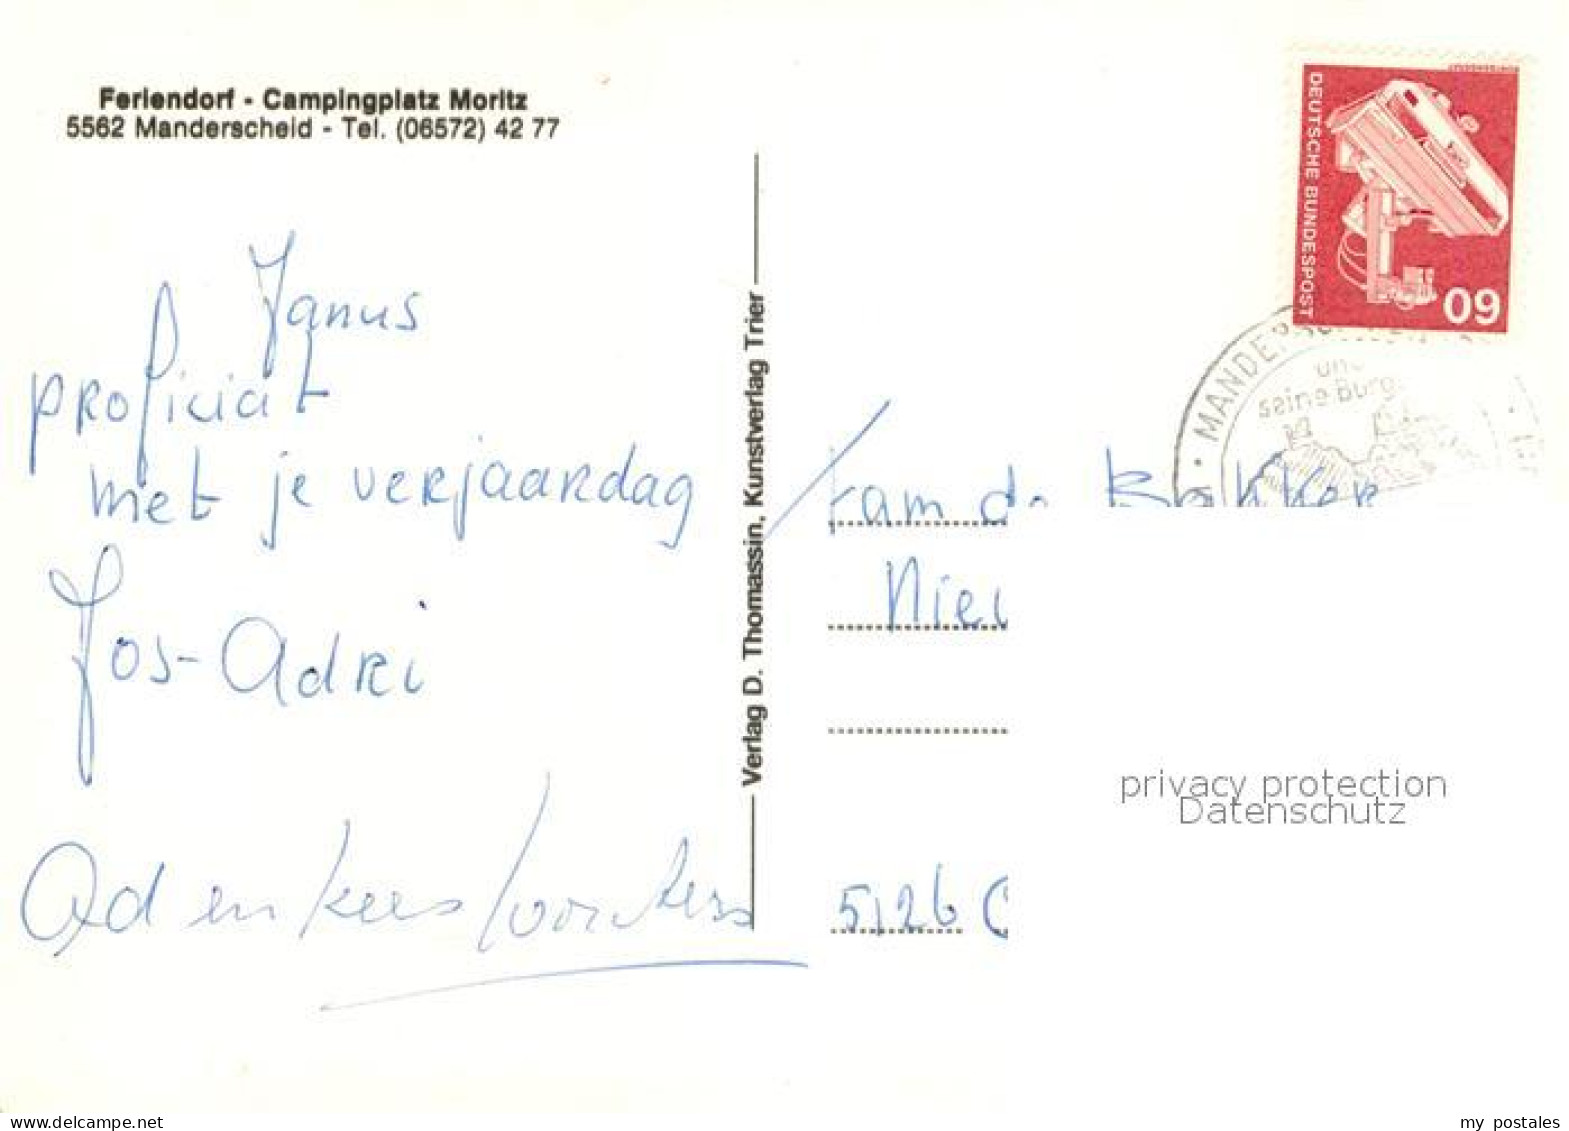 Feriendorf - Campingplatz Moritz
5562 Manderscheid - Tel. (06572) 42 77
Janus
proficiat
met je verjaardag
Jos - Adri
Ad en Kees
Verlag D. Thomassin, Kunstverlag Trier
DEUTSCHE BUNDESPOST
60
seine Burg
Fam d. Bakker
5126
privacy protection
Datenschutz
delcampe.net
my_postales